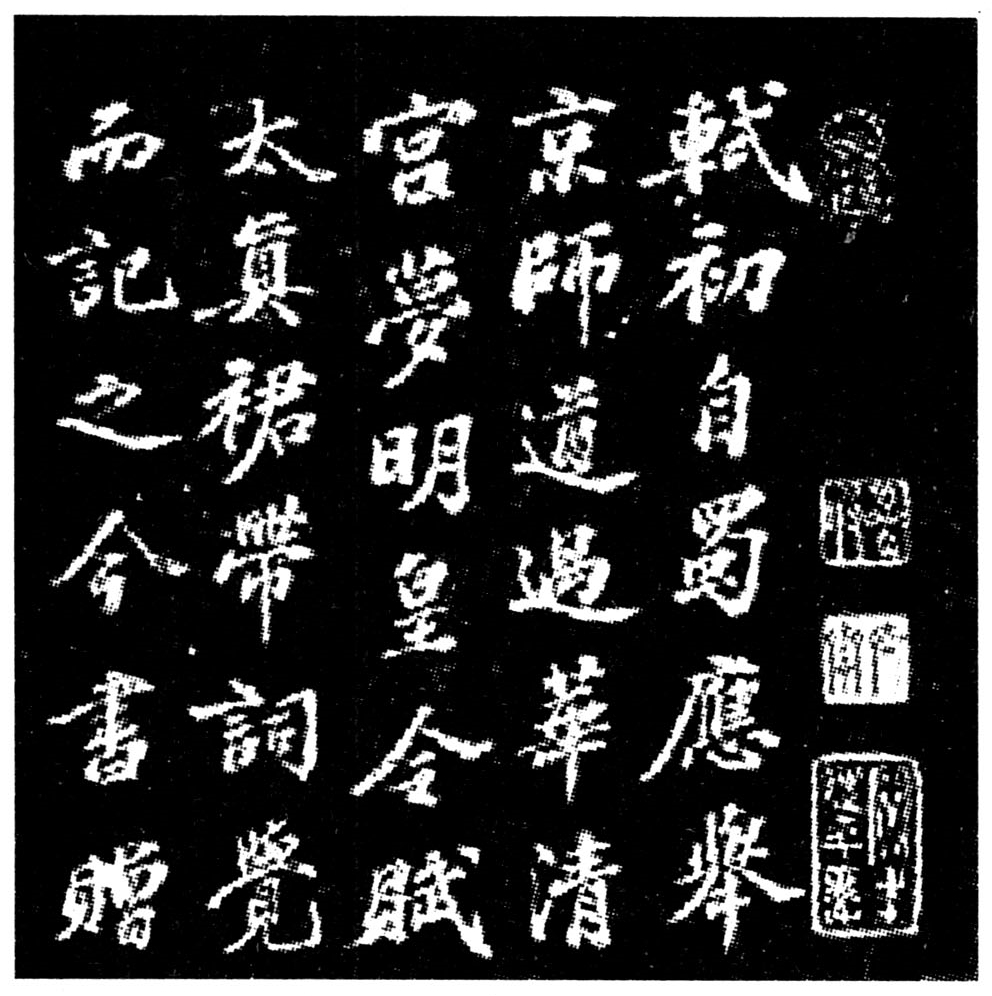 軾初自蜀應舉
京師道過華清
宮夢明皇令賦
太真裙帶詞覺
而記之今書贈